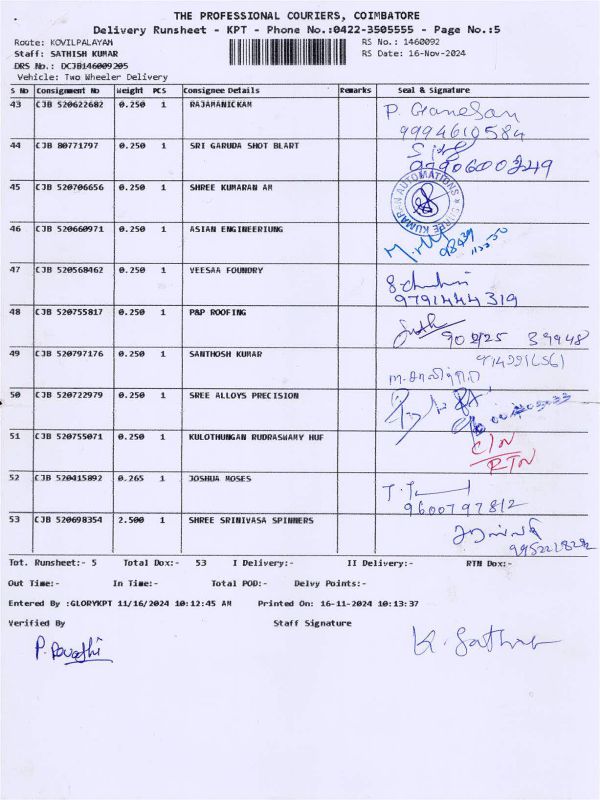 THE PROFESSIONAL COURIERS, COIMBATORE
Delivery Runsheet - KPT - Phone No.:0422-3505555 - Page No.:5
Route: KOVILPALAYAM RS No.: 1460092
Staff: SATHISH KUMAR RS Date: 16-Nov-2024
DRS No.: DCJB146009205
Vehicle: Two Wheeler Delivery
S No Consignment No Weight PCS Consignee Details Remarks Seal & Signature
43 CJB 520622682 0.250 1 RAJAMANICKAM P. Ganesan
9994610584
44 CJB 80771797 0.250 1 SRI GARUDA SHOT BLART
45 CJB 520706656 0.250 1 SHREE KUMARAN AM
SHREE KUMARAN AUTOMATIONS
46 CJB 520660971 0.250 1 ASIAN ENGINEERIUNG
47 CJB 520568462 0.250 1 VEESAA FOUNDRY
9791444319
48 CJB 520755817 0.250 1 P&P ROOFING
49 CJB 520797176 0.250 1 SANTHOSH KUMAR
50 CJB 520722979 0.250 1 SREE ALLOYS PRECISION
51 CJB 520755071 0.250 1 KULOTHUNGAN RUDRASWAMY HUF C/N
RTN
52 CJB 520415892 0.265 1 JOSHUA MOSES
9600797812
53 CJB 520698354 2.500 1 SHREE SRINIVASA SPINNERS
Tot. Runsheet:- 5 Total Dox:- 53 I Delivery:- II Delivery:- RTN Dox:-
Out Time:- In Time:- Total POD:- Delvy Points:-
Entered By :GLORYKPT 11/16/2024 10:12:45 AM Printed On: 16-11-2024 10:13:37
Verified By Staff Signature